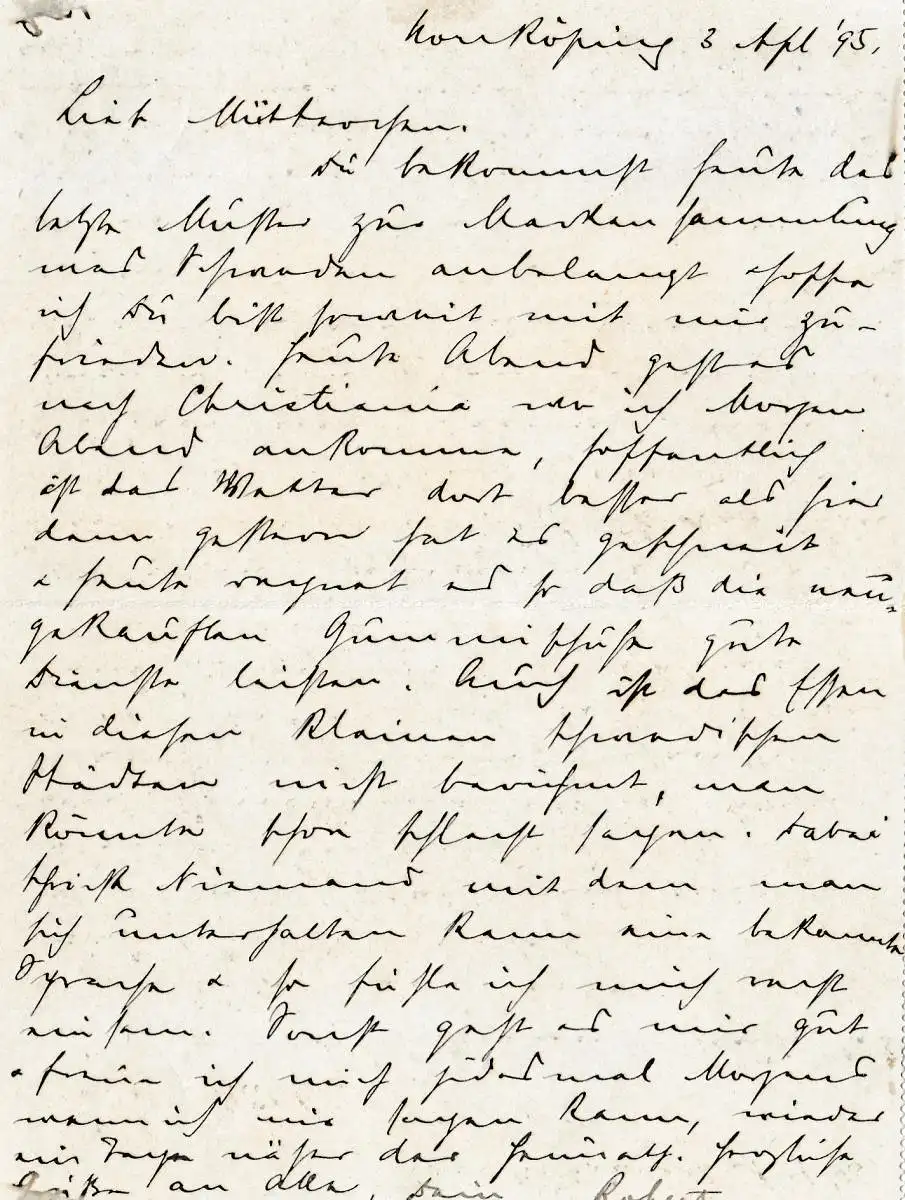 Norrköping 3 Apl '95.
Lieb Mütterchen.
Du bekommst heute das
letzte Muster zur Markensammlung
was Schweden anbelangt & hoffe
ich Du bist soweit mit mir zu-
frieden. Heute Abend geht es
nach Christiania wo ich Morgen
Abend ankomme, hoffentlich
ist das Wetter dort besser als hier
denn gestern hat es geschneit
& heute regnet es so daß die neu-
gekauften Gummischuhe gute
Dienste leisten. Auch ist das Essen
in diesen kleinen schwedischen
Städten nicht berühmt, man
könnte schon schlecht sagen. Dabei
spricht Niemand mit dem man
sich unterhalten kann eine bekannte
Sprache & so fühle ich mich recht
einsam. Sonst geht es mir gut
& freue ich mich jedesmal Morgens
wenn ich mir sagen kann, wieder
ein Tage näher der Heimath. Herzliche
Grüße an Alle, Dein Robert